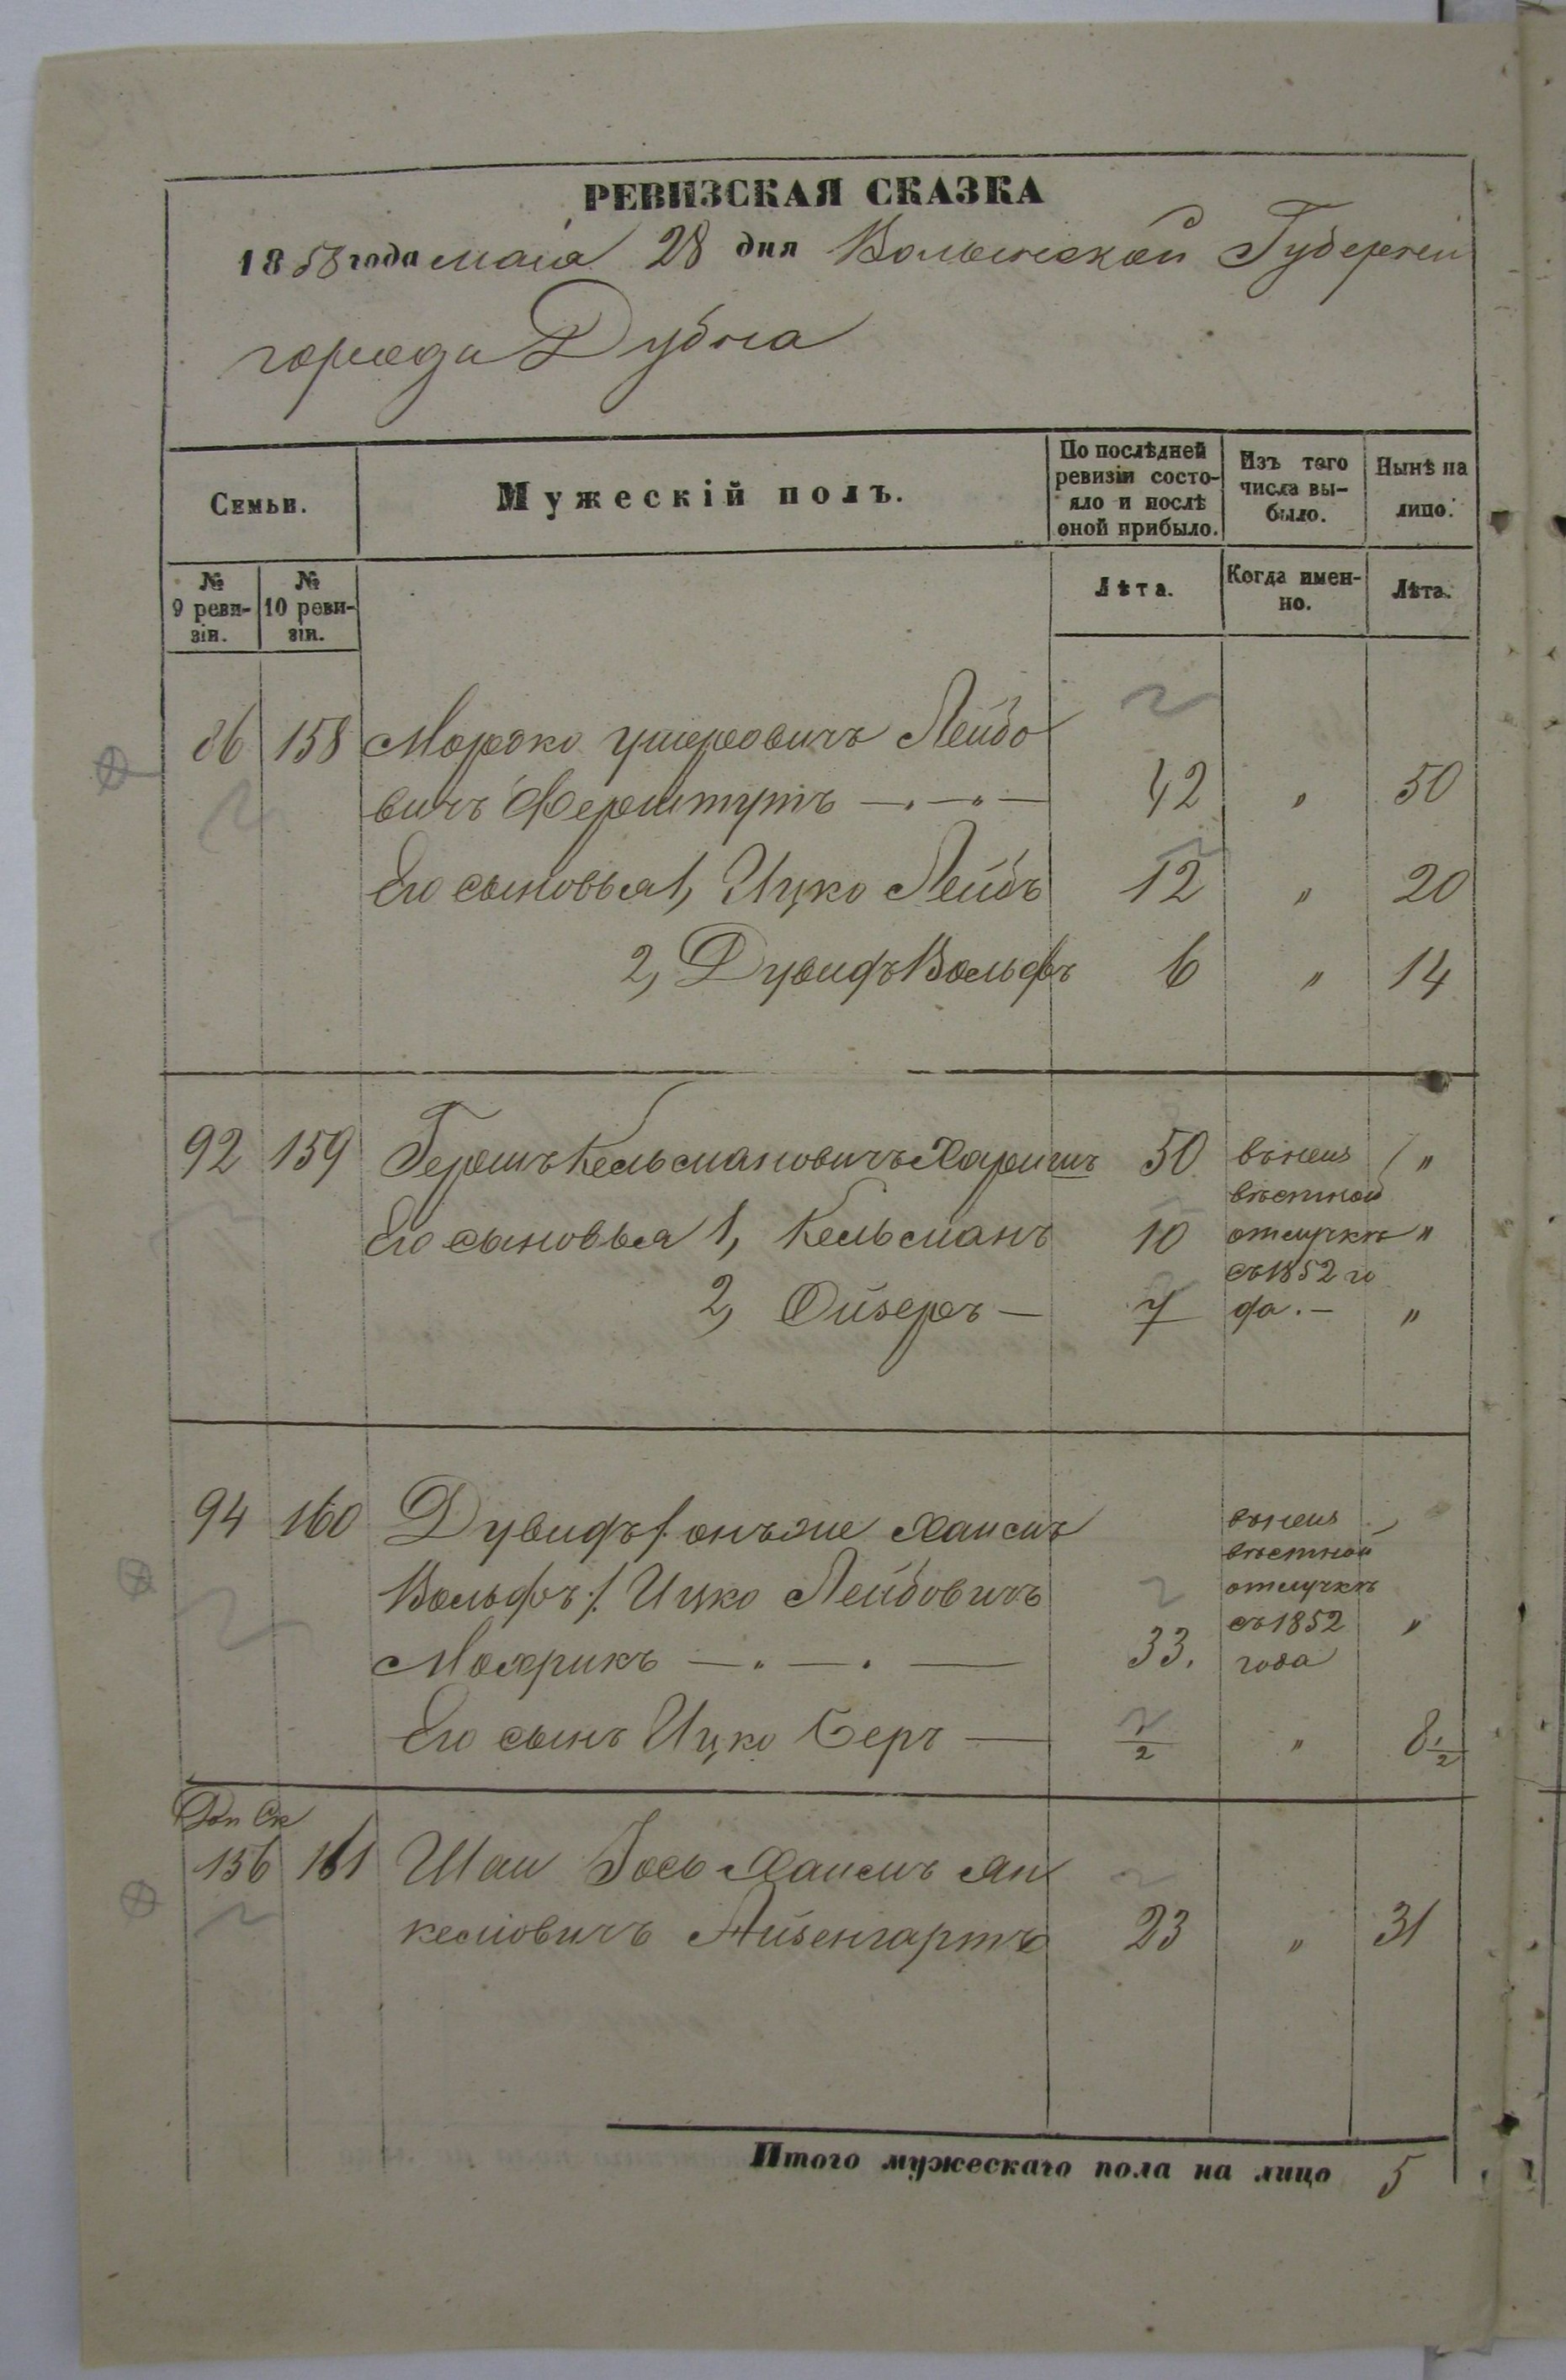 РЕВИЗСКАЯ СКАЗКА
1858 года маія 28 дня Волынской Губерніи
города Дубна
Семьи.
Мужескій полъ.
По послѣдней ревизіи состо-
яло и послѣ оной прибыло.
Изъ того числа вы-
было.
Нынѣ на лицо.
№ 9 реви-
зіи.
№ 10 реви-
зіи.
Лѣта.
Когда имен-
но.
Лѣта.
86 158 Мордко Ушеровичъ Лейбо
вичъ Ферштутъ 42 " 50
Его сыновья 1, Ицко Лейбъ 12 " 20
2, Дувидъ Вольфъ 6 " 14
92 159 Гершъ Кельмановичъ 50 въ неиз "
вѣстной
Его сыновья 1, Кельманъ 10 отлучкѣ "
съ 1852 го
2, Ойзеръ — 7 да. — "
94 160 Дувидъ /: онъ же Хаимъ въ неиз
вѣстной
Вольфъ :/ Ицко Лейбовичъ отлучкѣ
съ 1852 "
33. года
Его сынъ Ицко Беръ — 1/2 " 8 1/2
Доп Ск
156 161 Шаи Іось Хаимъ Ян
келіовичъ Айзенгартъ 23 " 31
Итого мужескаго пола на лицо 5